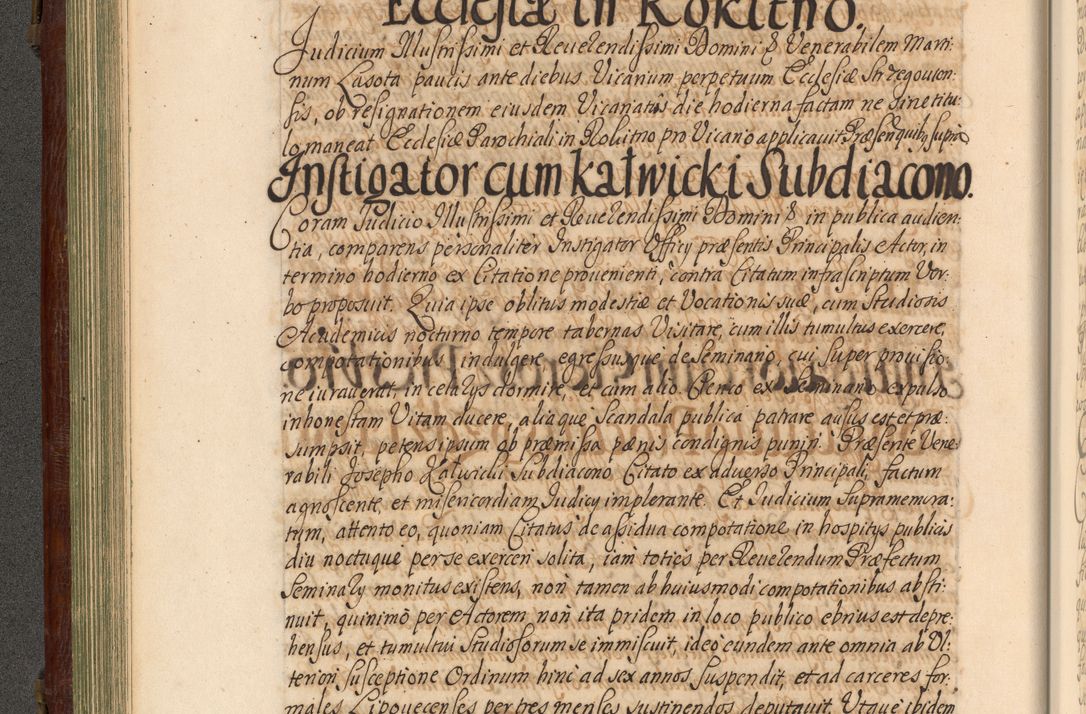 Ecclesiæ in Rokitno.
Judicium Illustrissimi et Reverendissimi Domini & Venerabilem Marti:
num Lasota paucis ante diebus Vicarium perpetuum Ecclesiæ Strzegovien:
sis, ob resignationem eiusdem Vicariatûs die hodierna factam ne sine titu:
lo maneat Ecclesiæ Parochiali in Rokitno pro Vicario applicauit Præsen: quibus supra
Instigator cum Kałwicki Subdiacono.
Coram Judicio Illustrissimi et Reuerendissimi Domini & in publica audien:
tia, comparens personaliter Instigator Officy præsentis Principalis Actor, in
termino hodierno ex Citatione prouenienti, contra Citatum infrascriptum Ver:
bo proposuit. Quia ipse oblitus modestiæ et Vocationis suæ, cum Studiosis
Academicis nocturno tempore tabernas Visitare, cum illis tumultus exercere,
compotationibus indulgere, egressusque de Seminario, cui super prouisio:
ne iurauerat, in celarys dormire, et cum alio Clerico ex Seminario expulso
inhonestam Vitam ducere, aliaque Scandala publica patrare ausus est et præ:
sumpsit, petens ipsum ob præmissa pænis condignis puniri. Præsente Vene:
rabili Josepho Kałwicki Subdiacono Citato ex aduerso Principali, factum
agnoscente, et misericordiam Judicy implorante. Et Judicium Supramemora:
tum, attento eo, quoniam Citatus de assidua compotatione in hospitys publicis
diu noctuque per se exerceri solita, iam toties per Reuerendum Præfectum
Seminary monitus existens, non tamen ab huiusmodi compotationibus absti:
nuit, quinimo per Actorem non ita pridem in loco publico ebrius est depre:
hensus, et tumultui Studiosorum se immiscuit, ideo eundem ante omnia ab Vl:
teriori susceptione Ordinum hinc ad sex annos suspendit, et ad carceres for:
males Lipovecenses per tres menses sustinendos deputauit. Vtque ibidem